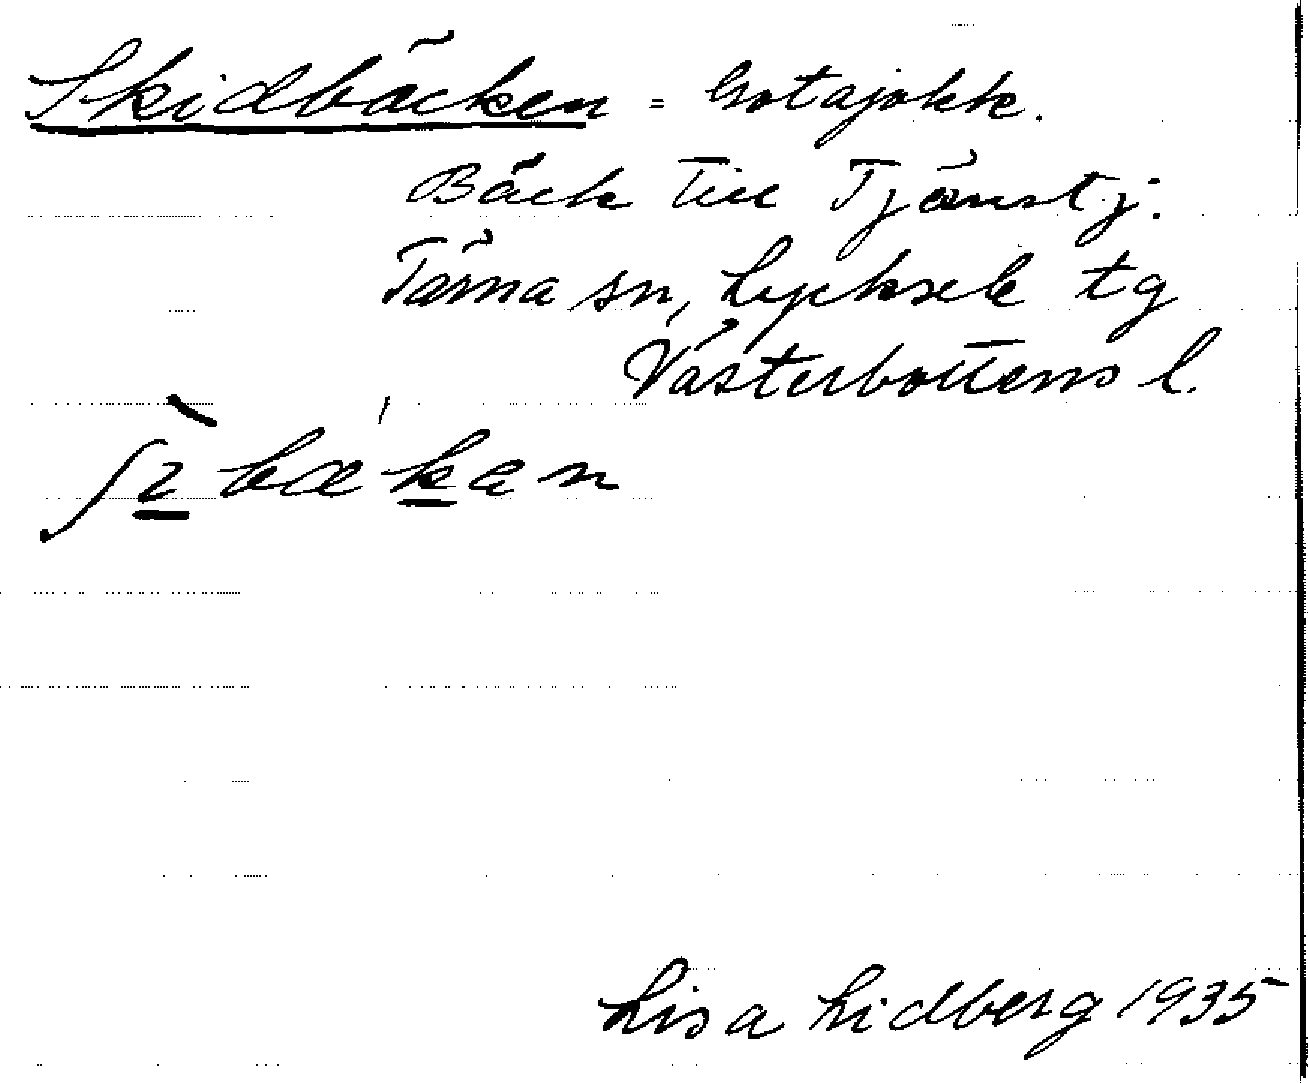 Skidbäcken = Gotajokk.
Bäck till Tjänstj:
Tärna sn, Lycksele tg
Västerbottens l.
Lisa Lidberg 1935